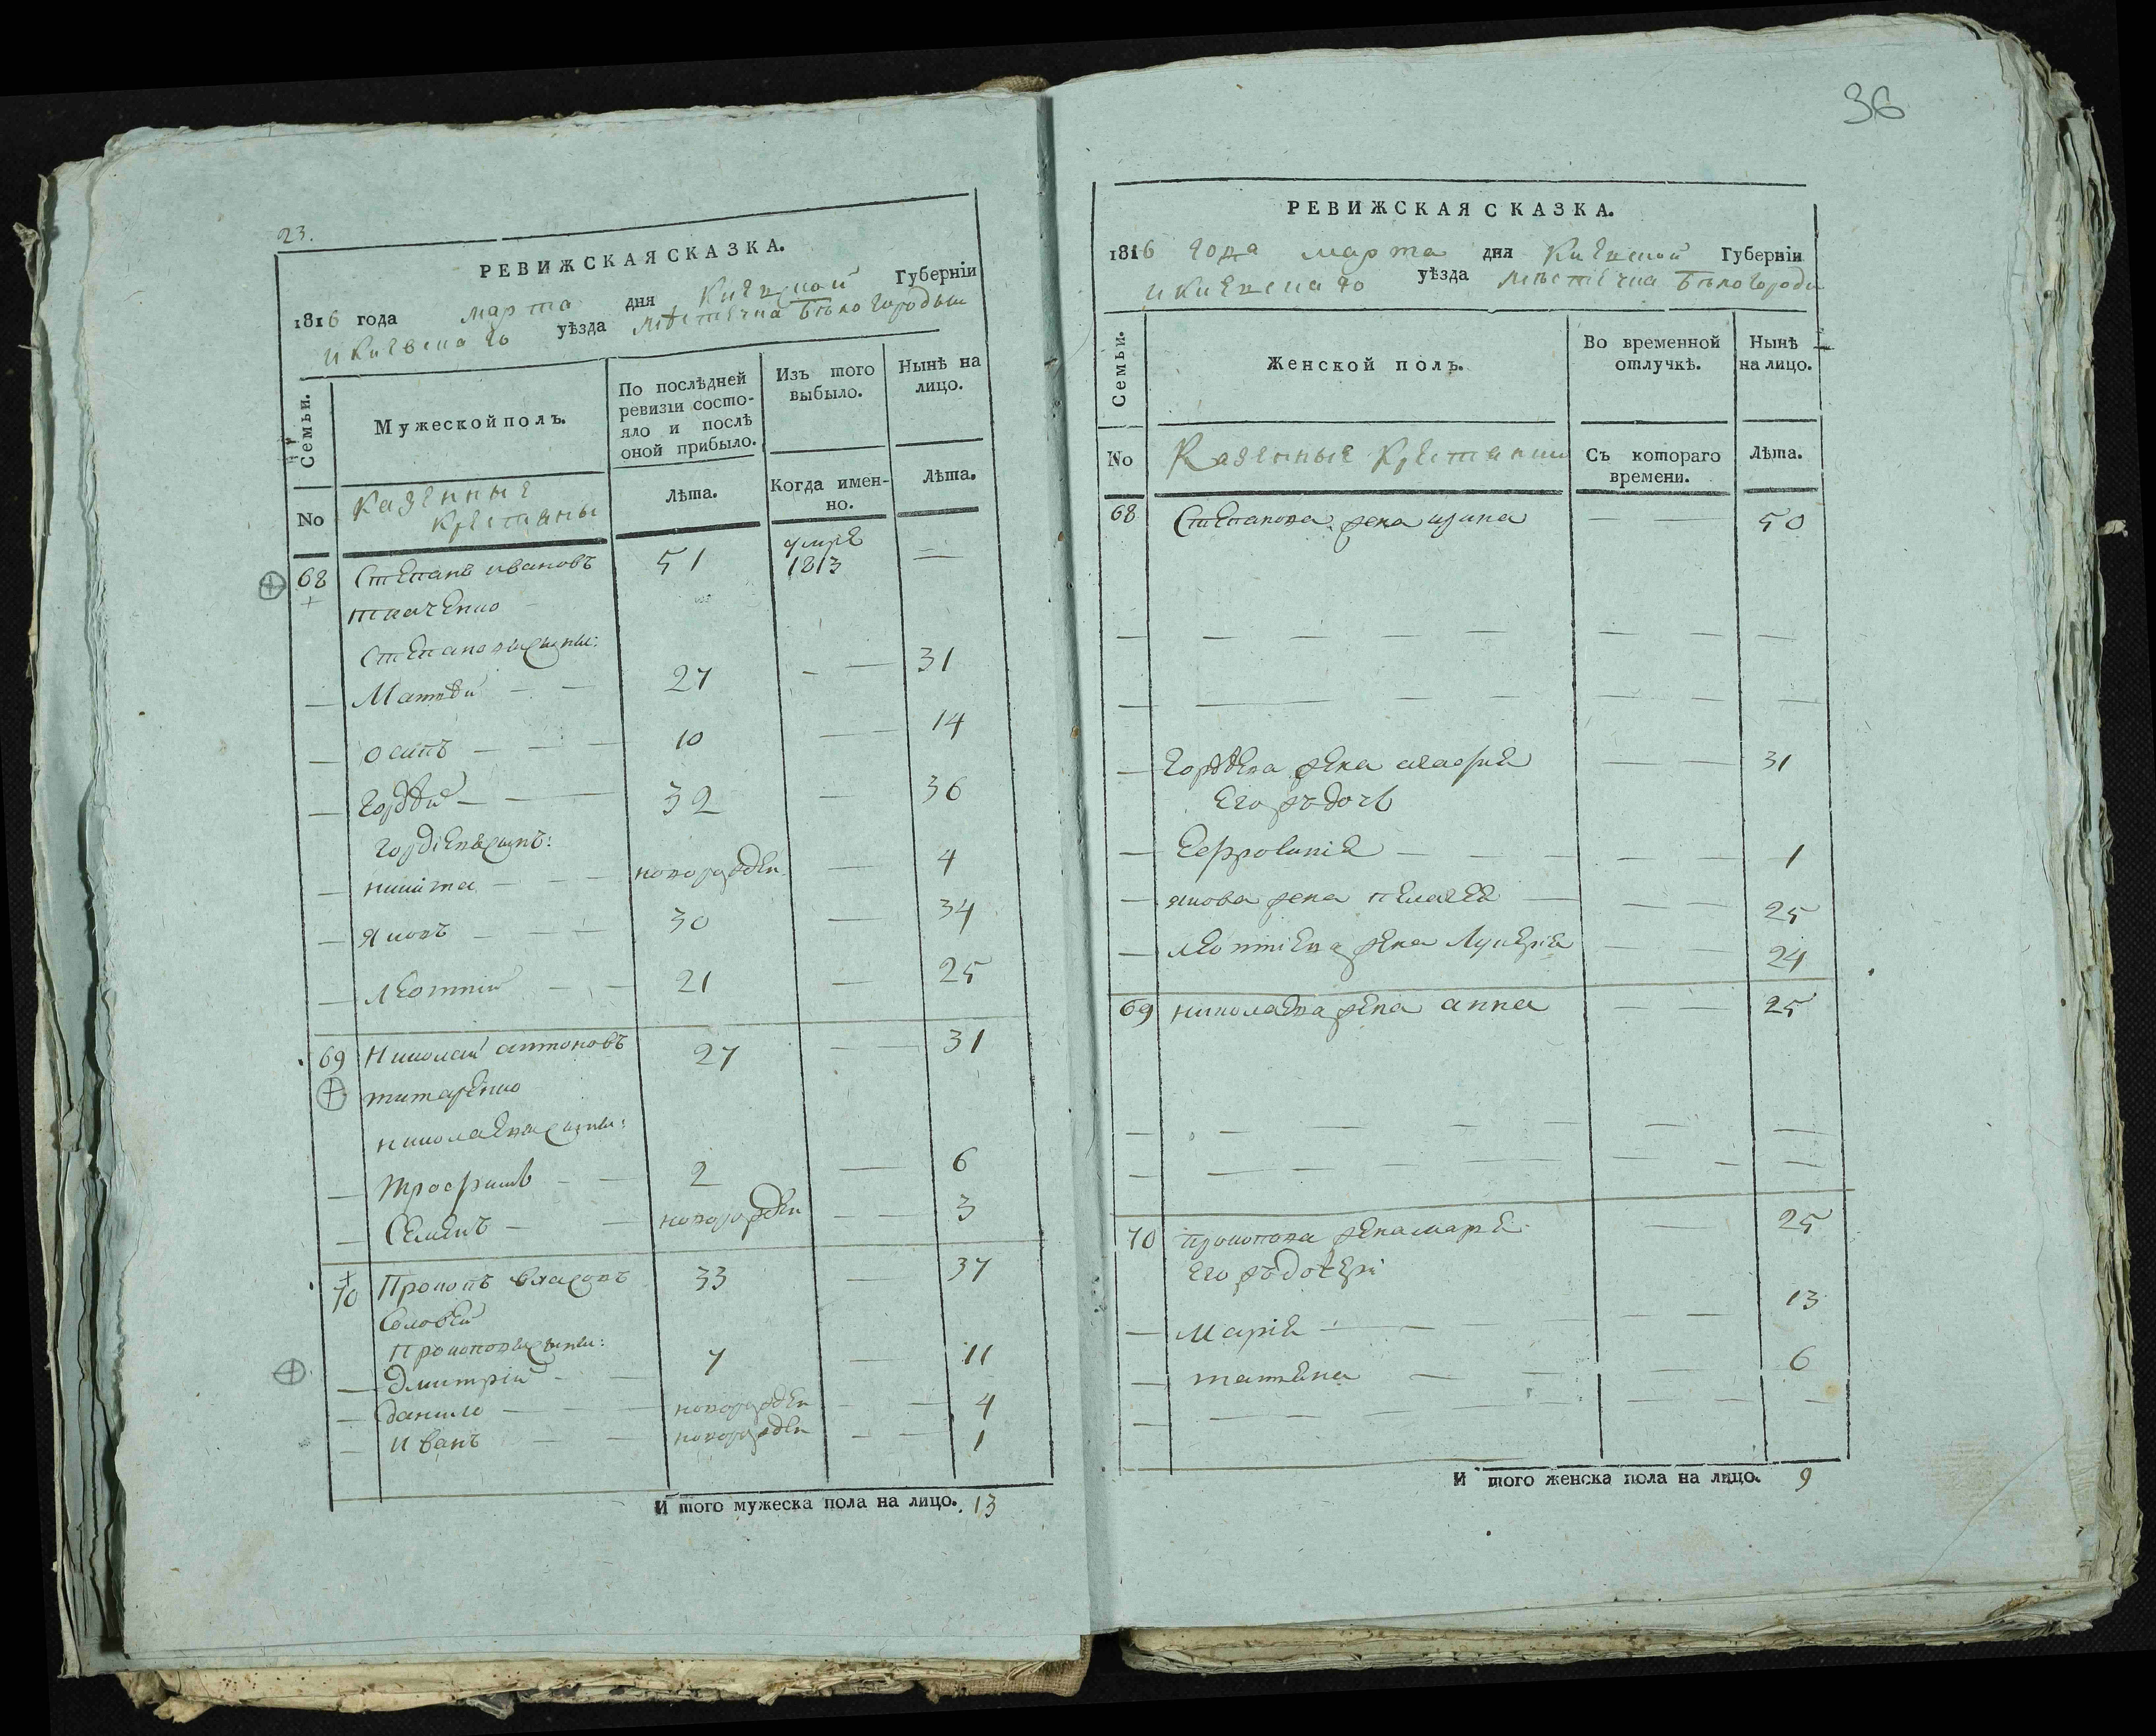 23.
РЕВИЖСКАЯ СКАЗКА.
1816 года марта дня Киевской Губерніи
и Киевскаго уѣзда мѣстечка Бѣлогородки
Семьи.
Мужеской полъ.
По послѣдней ревизіи состо-
яло и послѣ
оной прибыло.
Изъ того
выбыло.
Нынѣ на
лицо.
No
Казенные
Крестяны
Лѣта.
Когда имен-
но.
Лѣта.
68 Степанъ ивановъ 51 умре 1813 —
ткаченко
Степановы сыны:
— Матвѣй — — 27 — — 31
— осипъ — — — 10 — 14
— Гордѣй — — 32 — 36
Гордіевъ сынъ:
— никита — — — новорожден — 4
— Яковъ — — — 30 — 34
— леонтій — — 21 — 25
69 Николай антоновъ 27 — — 31
титаренко
николаевы сыны:
— трофимъ — — 2 — 6
— Семенъ — — новорожден — — 3
70 Прокопъ власовъ 33 — 37
Соловей
Прокоповы сыны:
— Дмитрій — — 7 — 11
— данило — — — новорожден — — 4
— иванъ — — новорожден — — 1
И того мужеска пола на лицо. 13
36
РЕВИЖСКАЯ СКАЗКА.
1816 года марта дня Киевской Губерніи
и Киевскаго уѣзда мѣстечка Бѣлогородки
Семьи.
Женской полъ.
Во временной
отлучкѣ.
Нынѣ
на лицо.
No
Казенные Крестянки
Съ котораго
времени.
Лѣта.
68 Степанова жена — — 50
— Гордѣева жена — — 31
Его жъ дочь
— Ефросинія — — — — — 1
— якова жена пелагея — — — 25
— леонтіева жена Лукерія — — 24
69 николаева жена анна — — 25
70 прокопова жена марія — 25
его жъ дочери
— Марія — — — — — 13
— татяна — — — 6
И того женска пола на лицо. 9